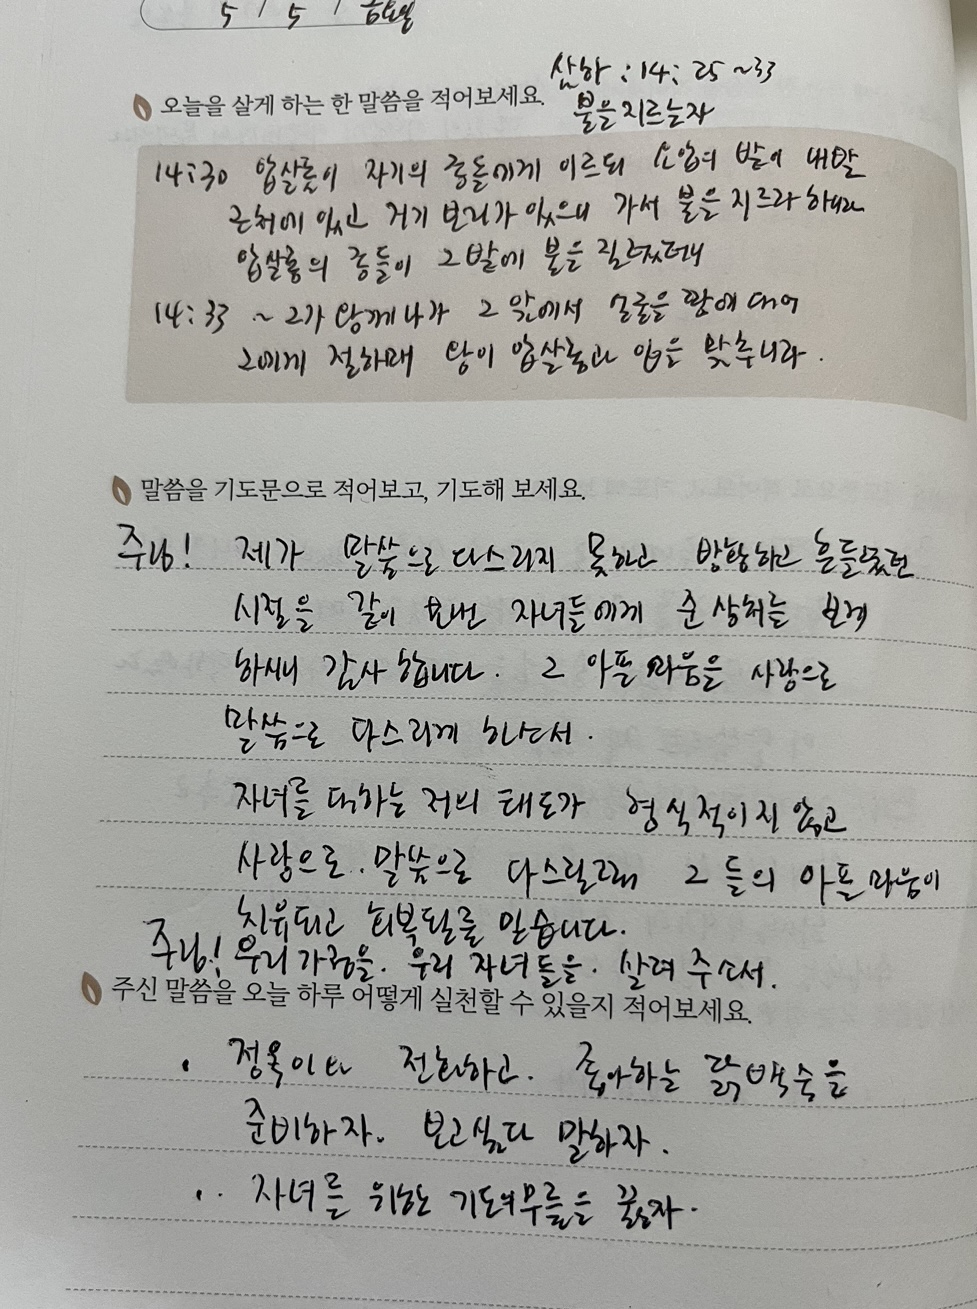 5 / 5 / 금요일
삼하 : 14 : 25 ~33
오늘을 살게 하는 한 말씀을 적어보세요.
불을 지르는자
14:30 압살롬이 자기의 종들에게 이르되 요압의 밭이 내밭
근처에 있고 거기 보리가 있으니 가서 불을 지르라 하니라
압살롬의 종들이 그밭에 불을 질렀더니
14:33 ~ 그가 왕께 나가 그 앞에서 얼굴을 땅에 대어
그에게 절하매 왕이 압살롬과 입을 맞추니라.
말씀을 기도문으로 적어보고, 기도해 보세요.
주님! 제가 말씀으로 다스리지 못하고 방황하고 흔들렸던
시절을 같이 보낸 자녀들에게 준 상처를 보게
하시니 감사 합니다. 그 아픈 마음을 사랑으로
말씀으로 다스리게 하소서.
자녀를 대하는 저의 태도가 형식적이지 않고
사랑으로.. 말씀으로 다스릴때 그 들의 아픈 마음이
치유되고 회복될를 믿습니다.
주님! 우리 가정을. 우리 자녀들을. 살려 주소서.
주신 말씀을 오늘 하루 어떻게 실천할 수 있을지 적어보세요.
· 전화하고. 좋아하는 닭백숙을
준비하자. 보고싶다 말하자.
· · 자녀를 위한 기도의무릎을 꿇자.